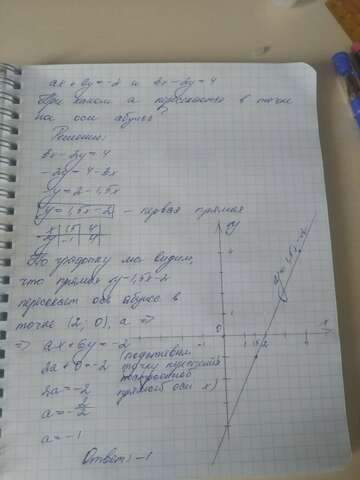 ax + 6y = -2 и 3x - 2y = 4
При каком a пересекаются в точке
на оси абцисс?
Решение
3x - 2y = 4
-2y = 4 - 3x
-y = 2 - 1,5x
y = 1,5x - 2 - первая прямая
x
y -1 4
По графику мы видим,
что прямая y = 1,5x - 2
пересекает ось абцисс в
точке (2, 0), а =>
=> ax + 6y = -2
2a + 0 = -2
(подставили
точку пересечения
прямой оси x)
2a = -2
a = -2/2
a = -1
Ответ: -1
y
x
0
y = 1,5x - 2